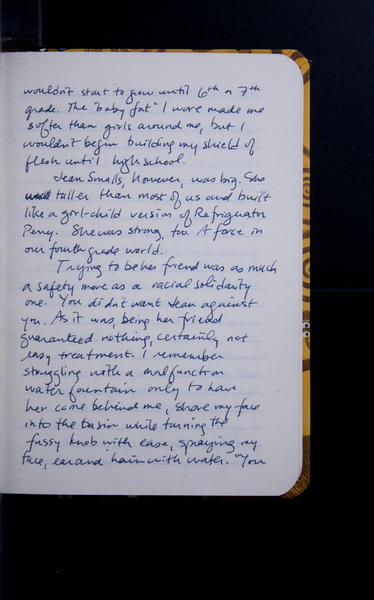 wouldn't start to grow until 6th or 7th
grade. The "baby fat" I wore made me
softer than girls around me, but I
wouldn't begin building my shield of
flesh until high school.
Jean Smalls, however, was big. She
was taller than most of us and built
like a girl-child version of Refrigerator
Perry. She was strong, too. A force in
our fourth grade world.
Trying to be her friend was as much
a safety move as a racial solidarity
one. You didn't want Jean against
you. As it was, being her friend
guaranteed nothing, certainly not
easy treatment. I remember
struggling with a malfunction
water fountain only to have
her come behind me, shove my face
into the basin while turning the
fussy knob with ease, spraying my
face, ear and hair with water. "You